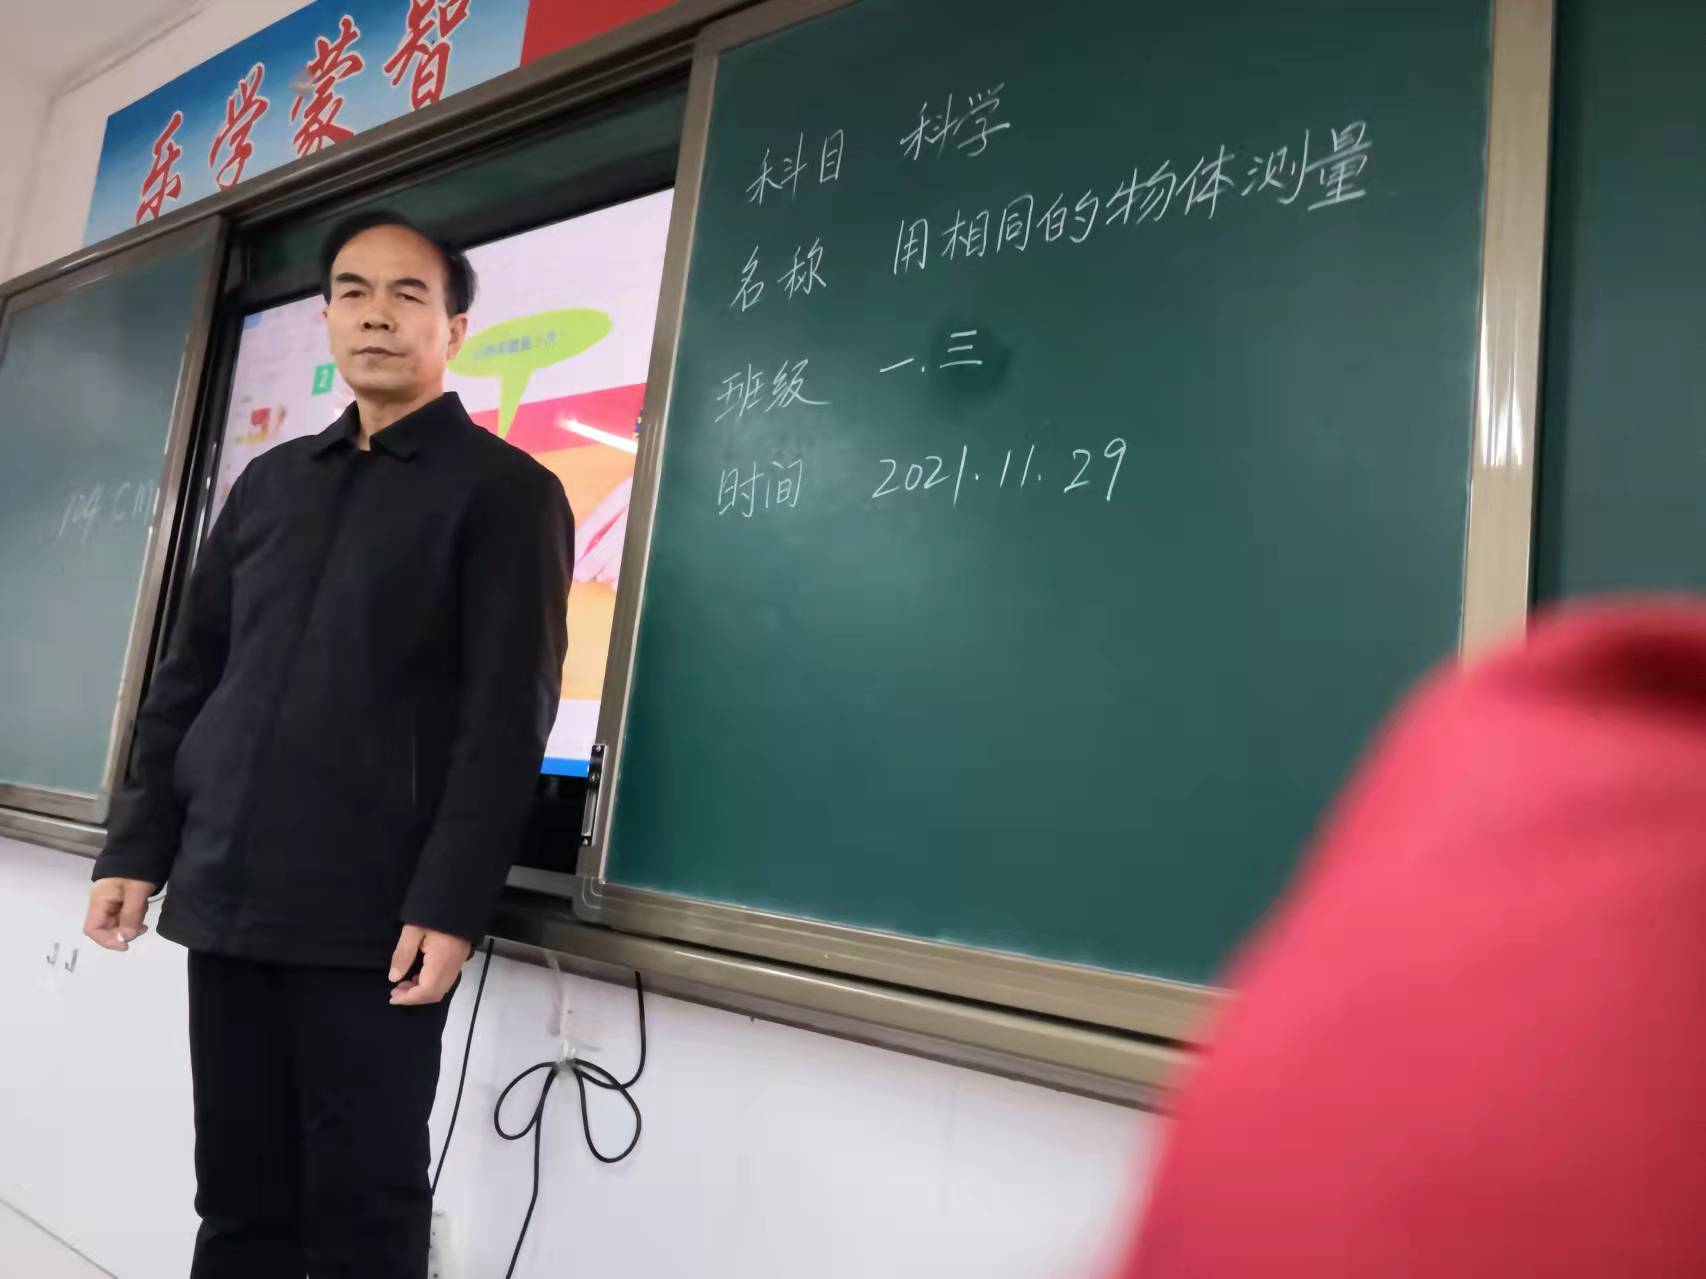 乐学蒙智
科目 科学
名称 用相同的物体测量
班级 一.三
时间 2021.11.29
2
CM